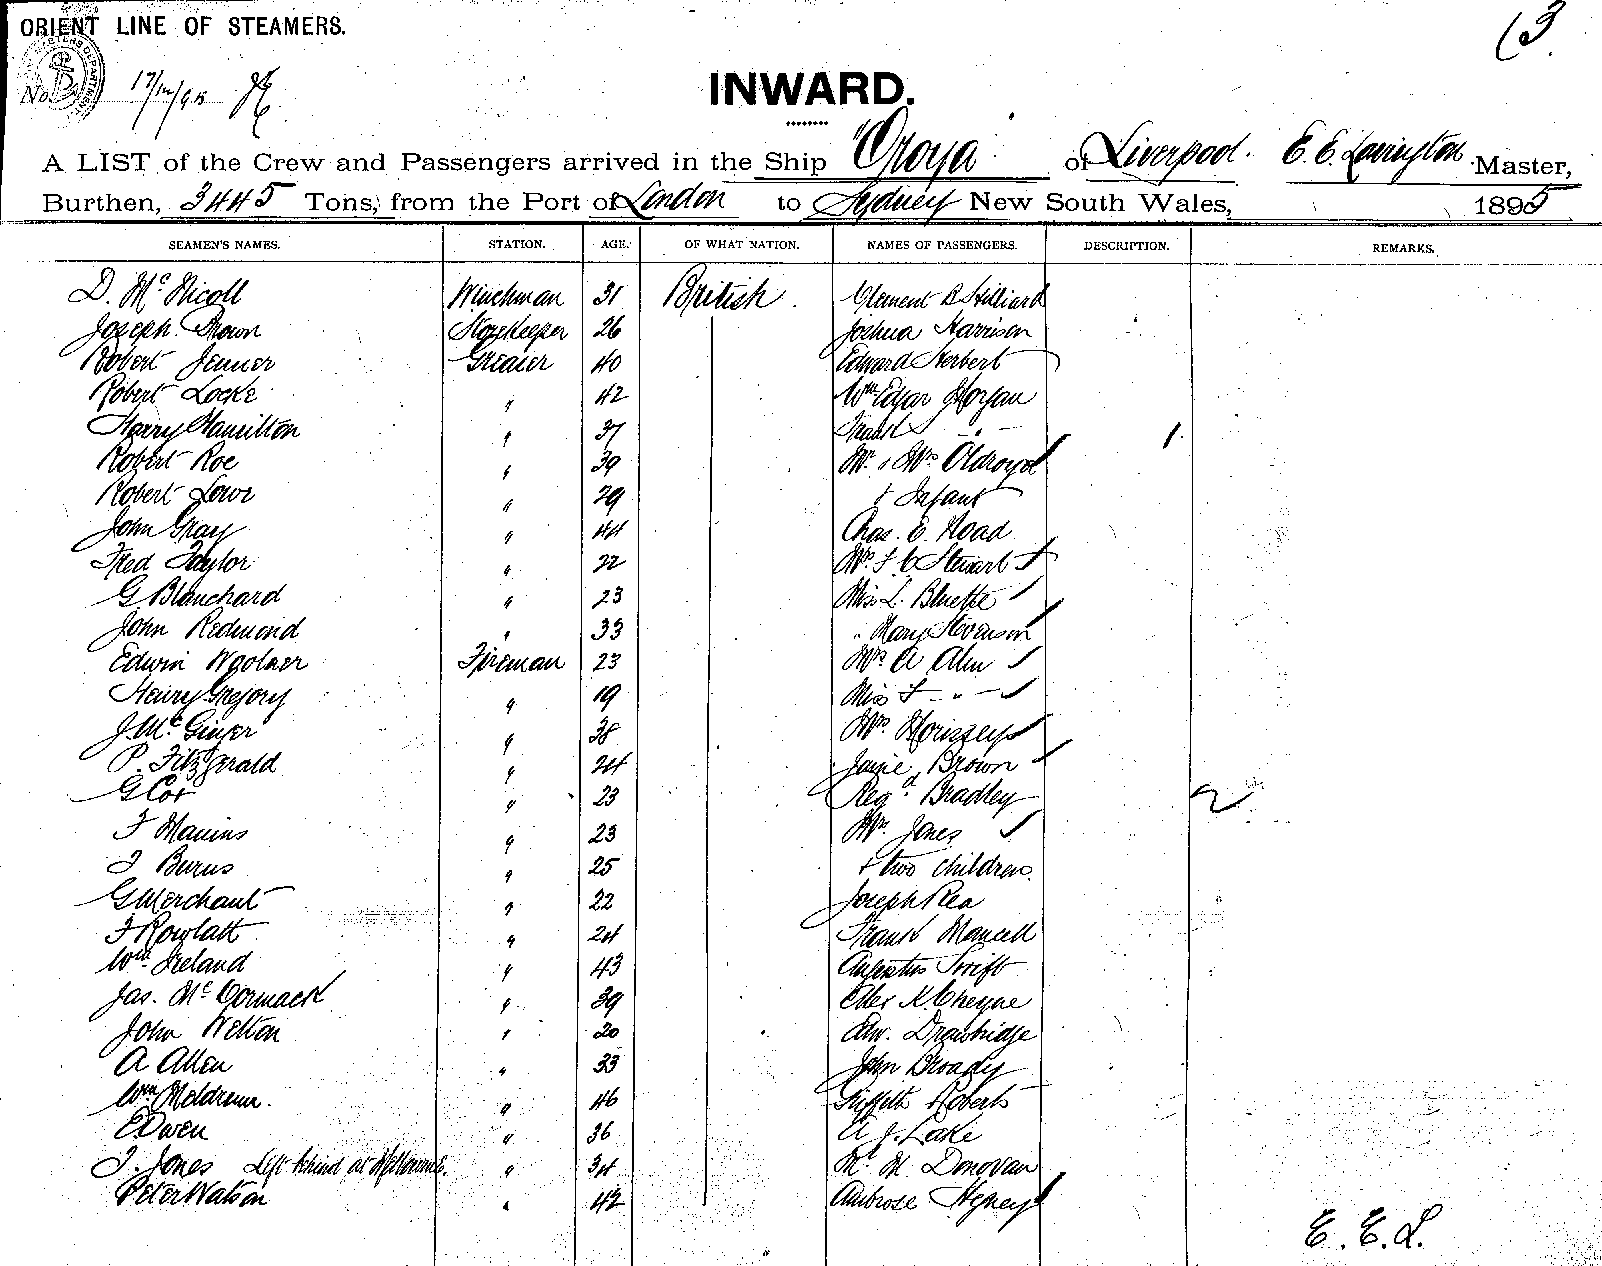 ORIENT LINE OF STEAMERS.
(3
No 17/12/95
INWARD.
A LIST of the Crew and Passengers arrived in the Ship "Oroya" of Liverpool. E. E. Lavington Master,
Burthen, 3445 Tons, from the Port of London to Sydney New South Wales, 1895
SEAMEN'S NAMES. STATION. AGE. OF WHAT NATION. NAMES OF PASSENGERS. DESCRIPTION. REMARKS.
D. McNicoll Winchman 31 British. Clement B Hilliard
Joseph Brown Storekeeper 26 Joshua Harrison
Robert Jenner Greaser 40 Edward Herbert
Robert Locke " 42 Wm Edgar Morgan
Harry Hamilton " 37 Frank - " -
Robert Roe " 39 Mr. & Mrs Oldroyd
Robert Lowe " 29 & Infant
John Gray " 44 Chas. E. Hoad
Fred Taylor " 22 Mrs. F. C Stewart
G. Blanchard " 23 Miss L. Bluette
John Redmond " 33 " Mary Stevenson
Edwin Woolner Fireman 23 Mrs A Alm
Henry Gregory " 19 Miss F - " -
J. Mc " 38 Mrs.
P. Fitzgerald " 24 Janie Brown
G Cox " 23 Regd. Bradley
F " 23 Mrs. Jones
J Burns " 25 & two children.
G Merchant " 22 Joseph Rea
F Rowlatt " 24 Frank Mancell
Wm. Ireland " 43 Augustus Swift
Jas. McCormack " 39 K. Cheyne
John Welton " 20 Edw. Drawbridge
A Allen " 33 John Broady
Wm Meldrum. " 46 Griffith Roberts
E Owen " 36 A J. Lake
J. Jones Left behind at Melbourne. " 34 M. Donovan
Peter Watson " 42 Ambrose
E. E. L.